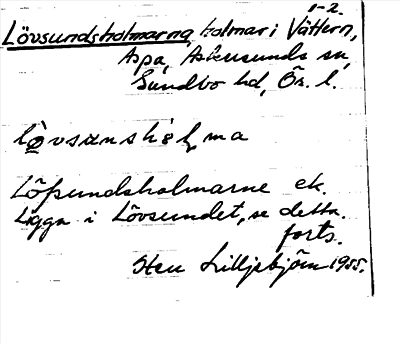 1-2.
Lövsundsholmarna, holmar i Vättern,
Aspa, Askersunds sn,
Sundbo hd, Ör. l.
lö̀vsunshólma
Löfsundsholmarne ek.
Ligga i Lövsundet, se detta.
forts.
Sten Lilljebjörn 1955.